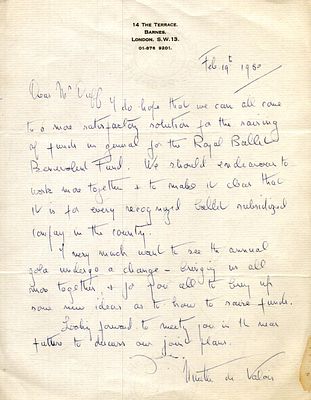 14 THE TERRACE,
BARNES,
LONDON, S.W.13.
01-876 9201.
Feb. 19th 1980
Dear Mr
I do hope that we can all come
to a more satisfactory solution for the raising
of funds in general for the Royal Ballet
Benevolent Fund. We should endeavour to
work more together & to make it clear that
it is for every recognised ballet subsidized
company in the country.
I very much want to see the annual
gala undergo a change - bringing us all
more together, & for you all to bring up
some new ideas as to how to raise funds.
Looking forward to meeting you in the near
future to discuss our joint plans.
Ninette de Valois